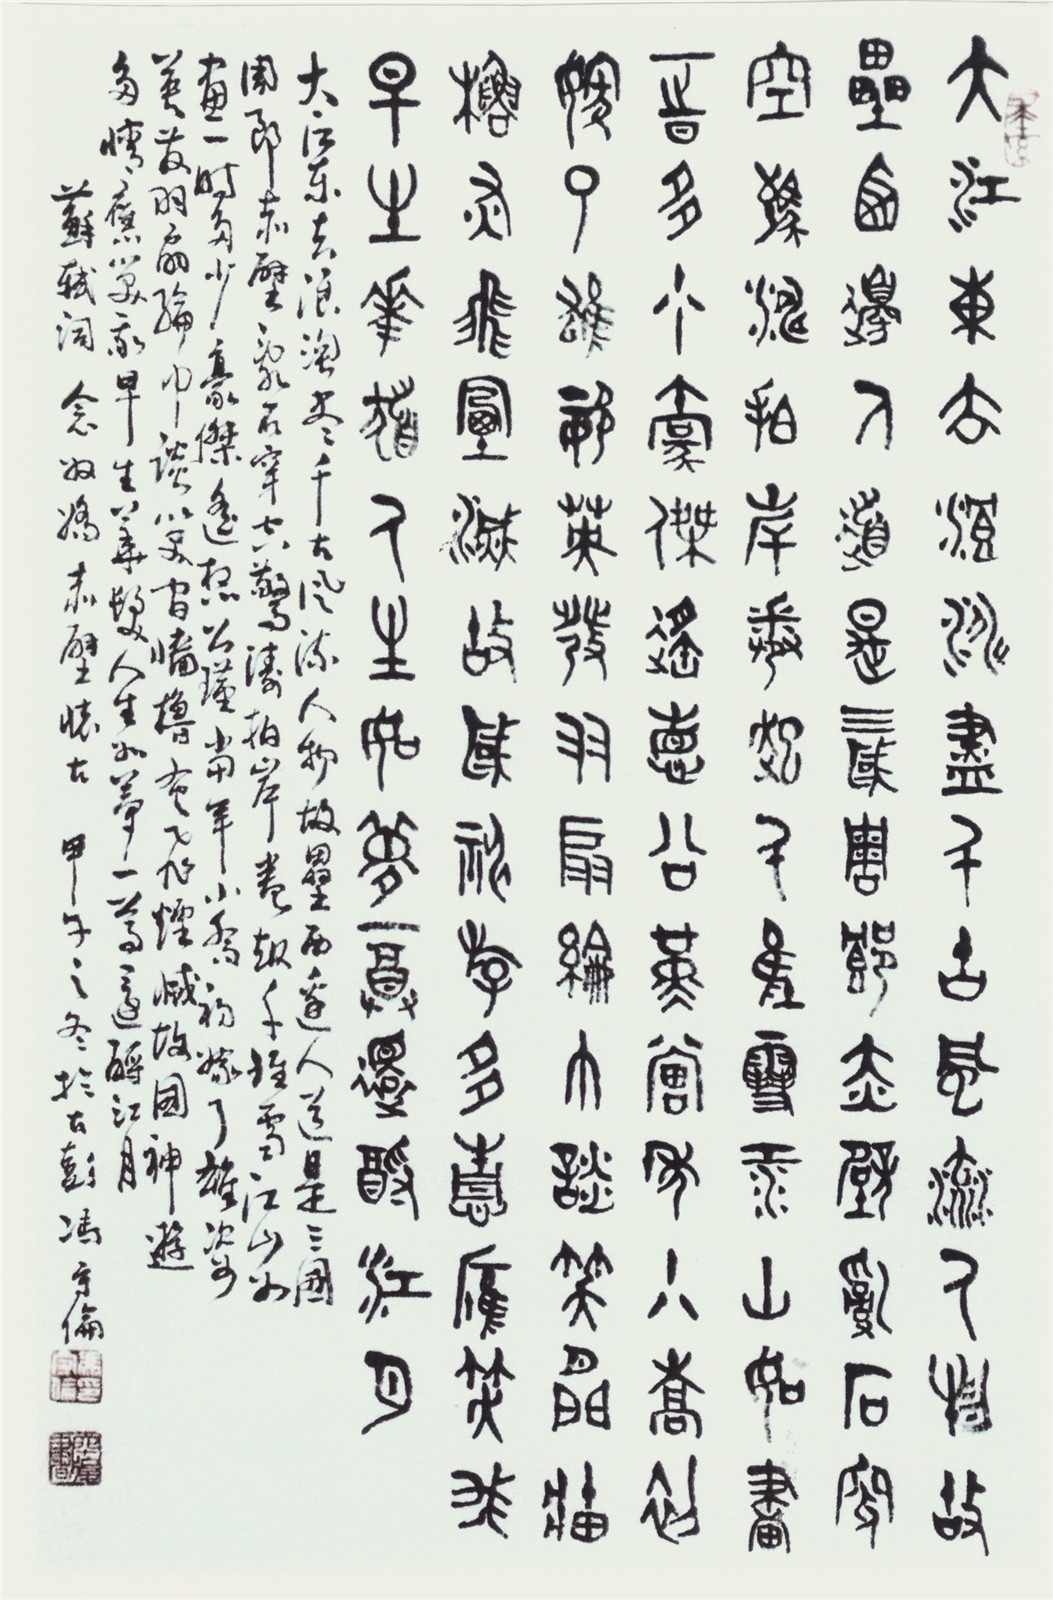 大江東去浪淘盡千古風流人物故
壘西邊人道是三國周郎赤壁亂石穿
空驚濤拍岸卷起千堆雪江山如畫
一時多少豪傑遙想公瑾當年小喬初
嫁了雄姿英發羽扇綸巾談笑間檣
櫓灰飛煙滅故國神游多情應笑我
早生華髮人生如夢一尊還酹江月
大江東去浪淘盡千古風流人物故壘西邊人道是三國
周郎赤壁亂石穿空驚濤拍岸卷起千堆雪江山如
畫一時多少豪傑遙想公瑾當年小喬初嫁了雄姿
英發羽扇綸巾談笑間檣櫓灰飛煙滅故國神遊
多情應笑我早生華髮人生如夢一尊還酹江月
蘇軾詞 念奴嬌赤壁懷古 甲午之冬於古彭馮守倫